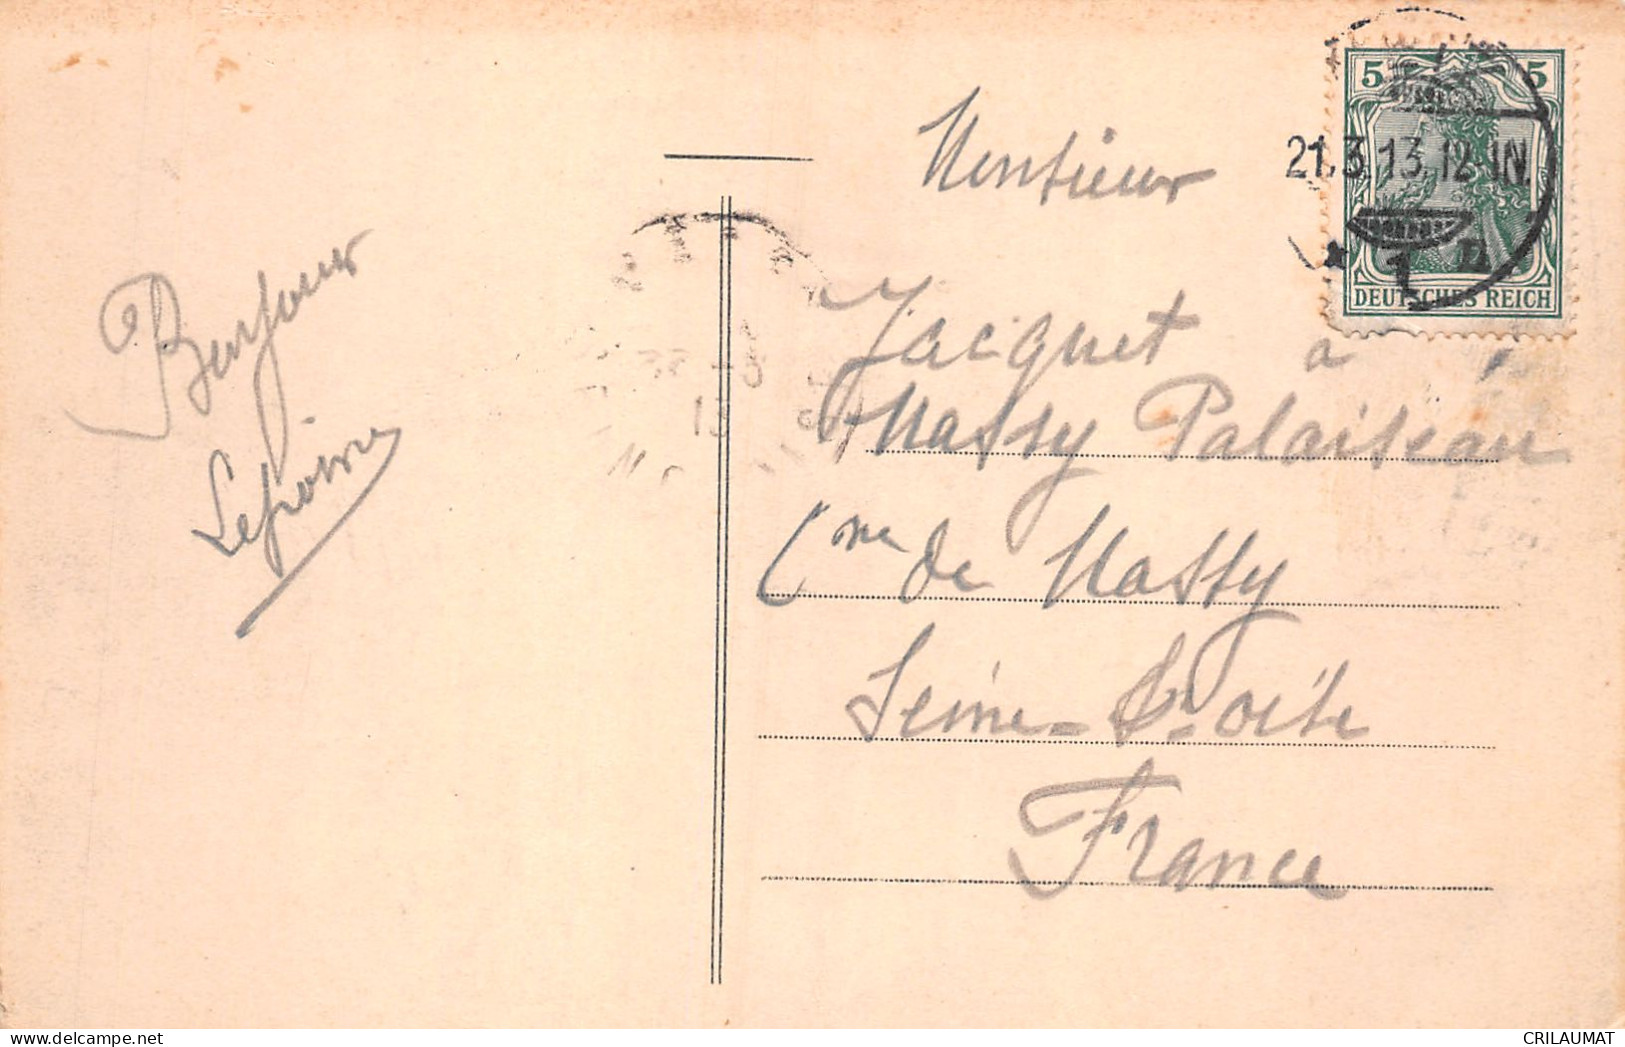 Bonjour
Lepoivre
Monsieur
Jacquet à
Massy Palaiseau
Cne de Massy
Seine & Oise
France
5 5
21.3.13.12-1N.
* 1 n
DEUTSCHES REICH
13
CRILAUMAT